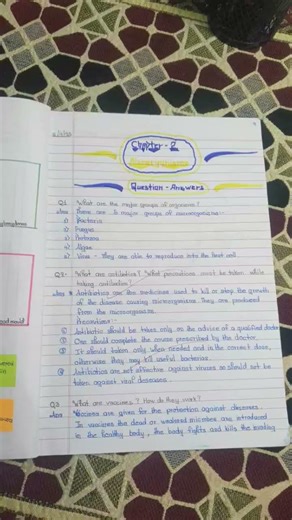 Chapter - 2
Question - Answers
Q1. What are the major groups of organisms?
Ans There are 5 major groups of microorganisms:-
Bacteria
Fungus
Protozoa
Algae
Virus - They are able to reproduce into the host cell
Q2- What are antibiotics? What precautions must be taken while
taking antibiotics?
Ans Antibiotics are the medicines used to kill or stop the growth
of the disease causing microorganisms. They are produced
from the microorganisms.
Precautions:-
① Antibiotic should be taken only on the advice of a qualified doctor
② One should complete the course prescribed by the doctor.
③ It should taken only when needed and in the correct dose,
otherwise they may kill useful bacteria.
④ Antibiotics are not effective against viruses so should not be
taken against viral
Q3 What are vaccines? How do they work?
Ans Vaccines are given for the protection against diseases.
In vaccines the dead or weakened microbes are introduced
in the healthy body, the body fights and kills the